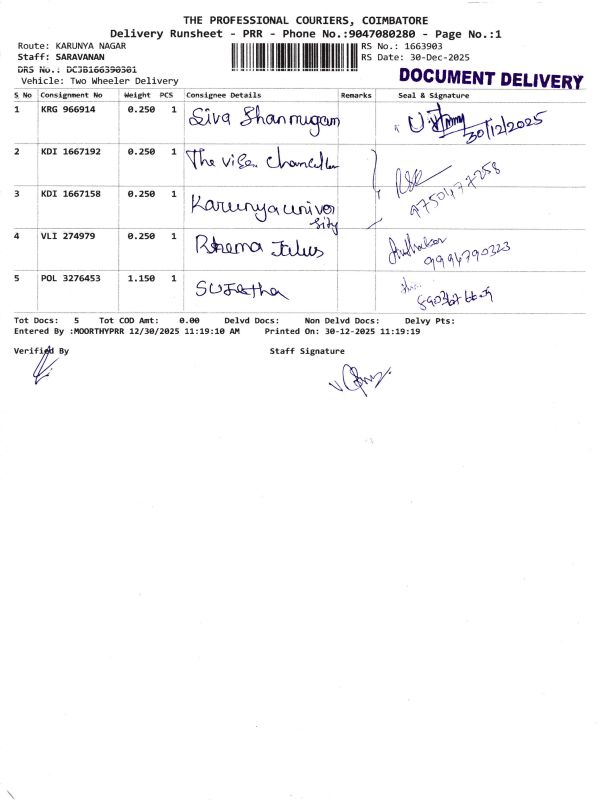 THE PROFESSIONAL COURIERS, COIMBATORE
Delivery Runsheet - PRR - Phone No.:9047080280 - Page No.:1
Route: KARUNYA NAGAR RS No.: 1663903
Staff: SARAVANAN RS Date: 30-Dec-2025
DRS No.: DCJB166390301
Vehicle: Two Wheeler Delivery DOCUMENT DELIVERY
S No Consignment No Weight PCS Consignee Details Remarks Seal & Signature
1 KRG 966914 0.250 1 Siva Shanmugam 30/12/2025
2 KDI 1667192 0.250 1 The vise chancellor
3 KDI 1667158 0.250 1 Karunya univer 9750477258
sity
4 VLI 274979 0.250 1 Rhema 9994790323
5 POL 3276453 1.150 1 Sujatha
Tot Docs: 5 Tot COD Amt: 0.00 Delvd Docs: Non Delvd Docs: Delvy Pts:
Entered By :MOORTHYPRR 12/30/2025 11:19:10 AM Printed On: 30-12-2025 11:19:19
Verified By Staff Signature